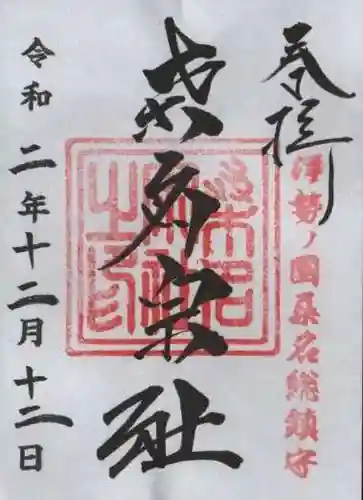 奉拝
伊勢ノ國桑名総鎮守
桑名宗社
令和二年十二月十二日